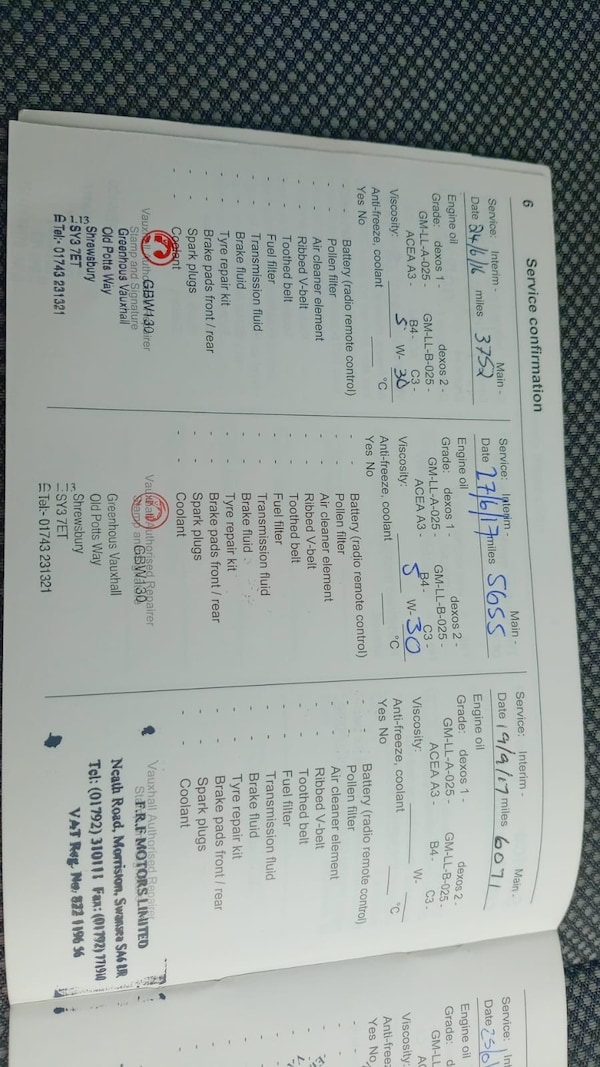 6
Service confirmation
Service: Interim - Main -
Date 24/6/16 miles 3752
Engine oil
Grade: dexos 1 - dexos 2 -
GM-LL-A-025 - GM-LL-B-025 -
ACEA A3 - B4 - C3 -
Viscosity: 5 W- 30
Anti-freeze, coolant °C
Yes No
- - Battery (radio remote control)
- - Pollen filter
- - Air cleaner element
- - Ribbed V-belt
- - Toothed belt
- - Fuel filter
- - Transmission fluid
- - Brake fluid
- - Tyre repair kit
- - Brake pads front / rear
- - Spark plugs
- - Coolant
Vauxhall Authorised Repairer
Stamp and Signature
GBW130
Greenhous Vauxhall
Old Potts Way
Shrewsbury
SY3 7ET
Tel:- 01743 231321
Service: Interim - Main -
Date 27/6/17 miles 5655
Engine oil
Grade: dexos 1 - dexos 2 -
GM-LL-A-025 - GM-LL-B-025 -
ACEA A3 - B4 - C3 -
Viscosity: 5 W- 30
Anti-freeze, coolant °C
Yes No
- - Battery (radio remote control)
- - Pollen filter
- - Air cleaner element
- - Ribbed V-belt
- - Toothed belt
- - Fuel filter
- - Transmission fluid
- - Brake fluid
- - Tyre repair kit
- - Brake pads front / rear
- - Spark plugs
- - Coolant
Vauxhall Authorised Repairer
GBW130
Greenhous Vauxhall
Old Potts Way
Shrewsbury
SY3 7ET
Tel:- 01743 231321
Service: Interim - Main -
Date 19/9/17 miles 6071
Engine oil
Grade: dexos 1 - dexos 2 -
GM-LL-A-025 - GM-LL-B-025 -
ACEA A3 B4 - C3 -
Viscosity: W-
Anti-freeze, coolant °C
Yes No
- - Battery (radio remote control)
- - Pollen filter
- - Air cleaner element
- - Ribbed V-belt
- - Toothed belt
- - Fuel filter
- - Transmission fluid
- - Brake fluid
- - Tyre repair kit
- - Brake pads front / rear
- - Spark plugs
- - Coolant
Vauxhall Authorised Repairer
F.R.F MOTORS LIMITED
Neath Road, Morriston, Swansea SA6 8JR
Tel: (01792) 310111 Fax: (01792) 771910
VAT Reg. No. 822 1196 56
Service:
Date
Engine oil
Grade:
Viscosity:
Yes No